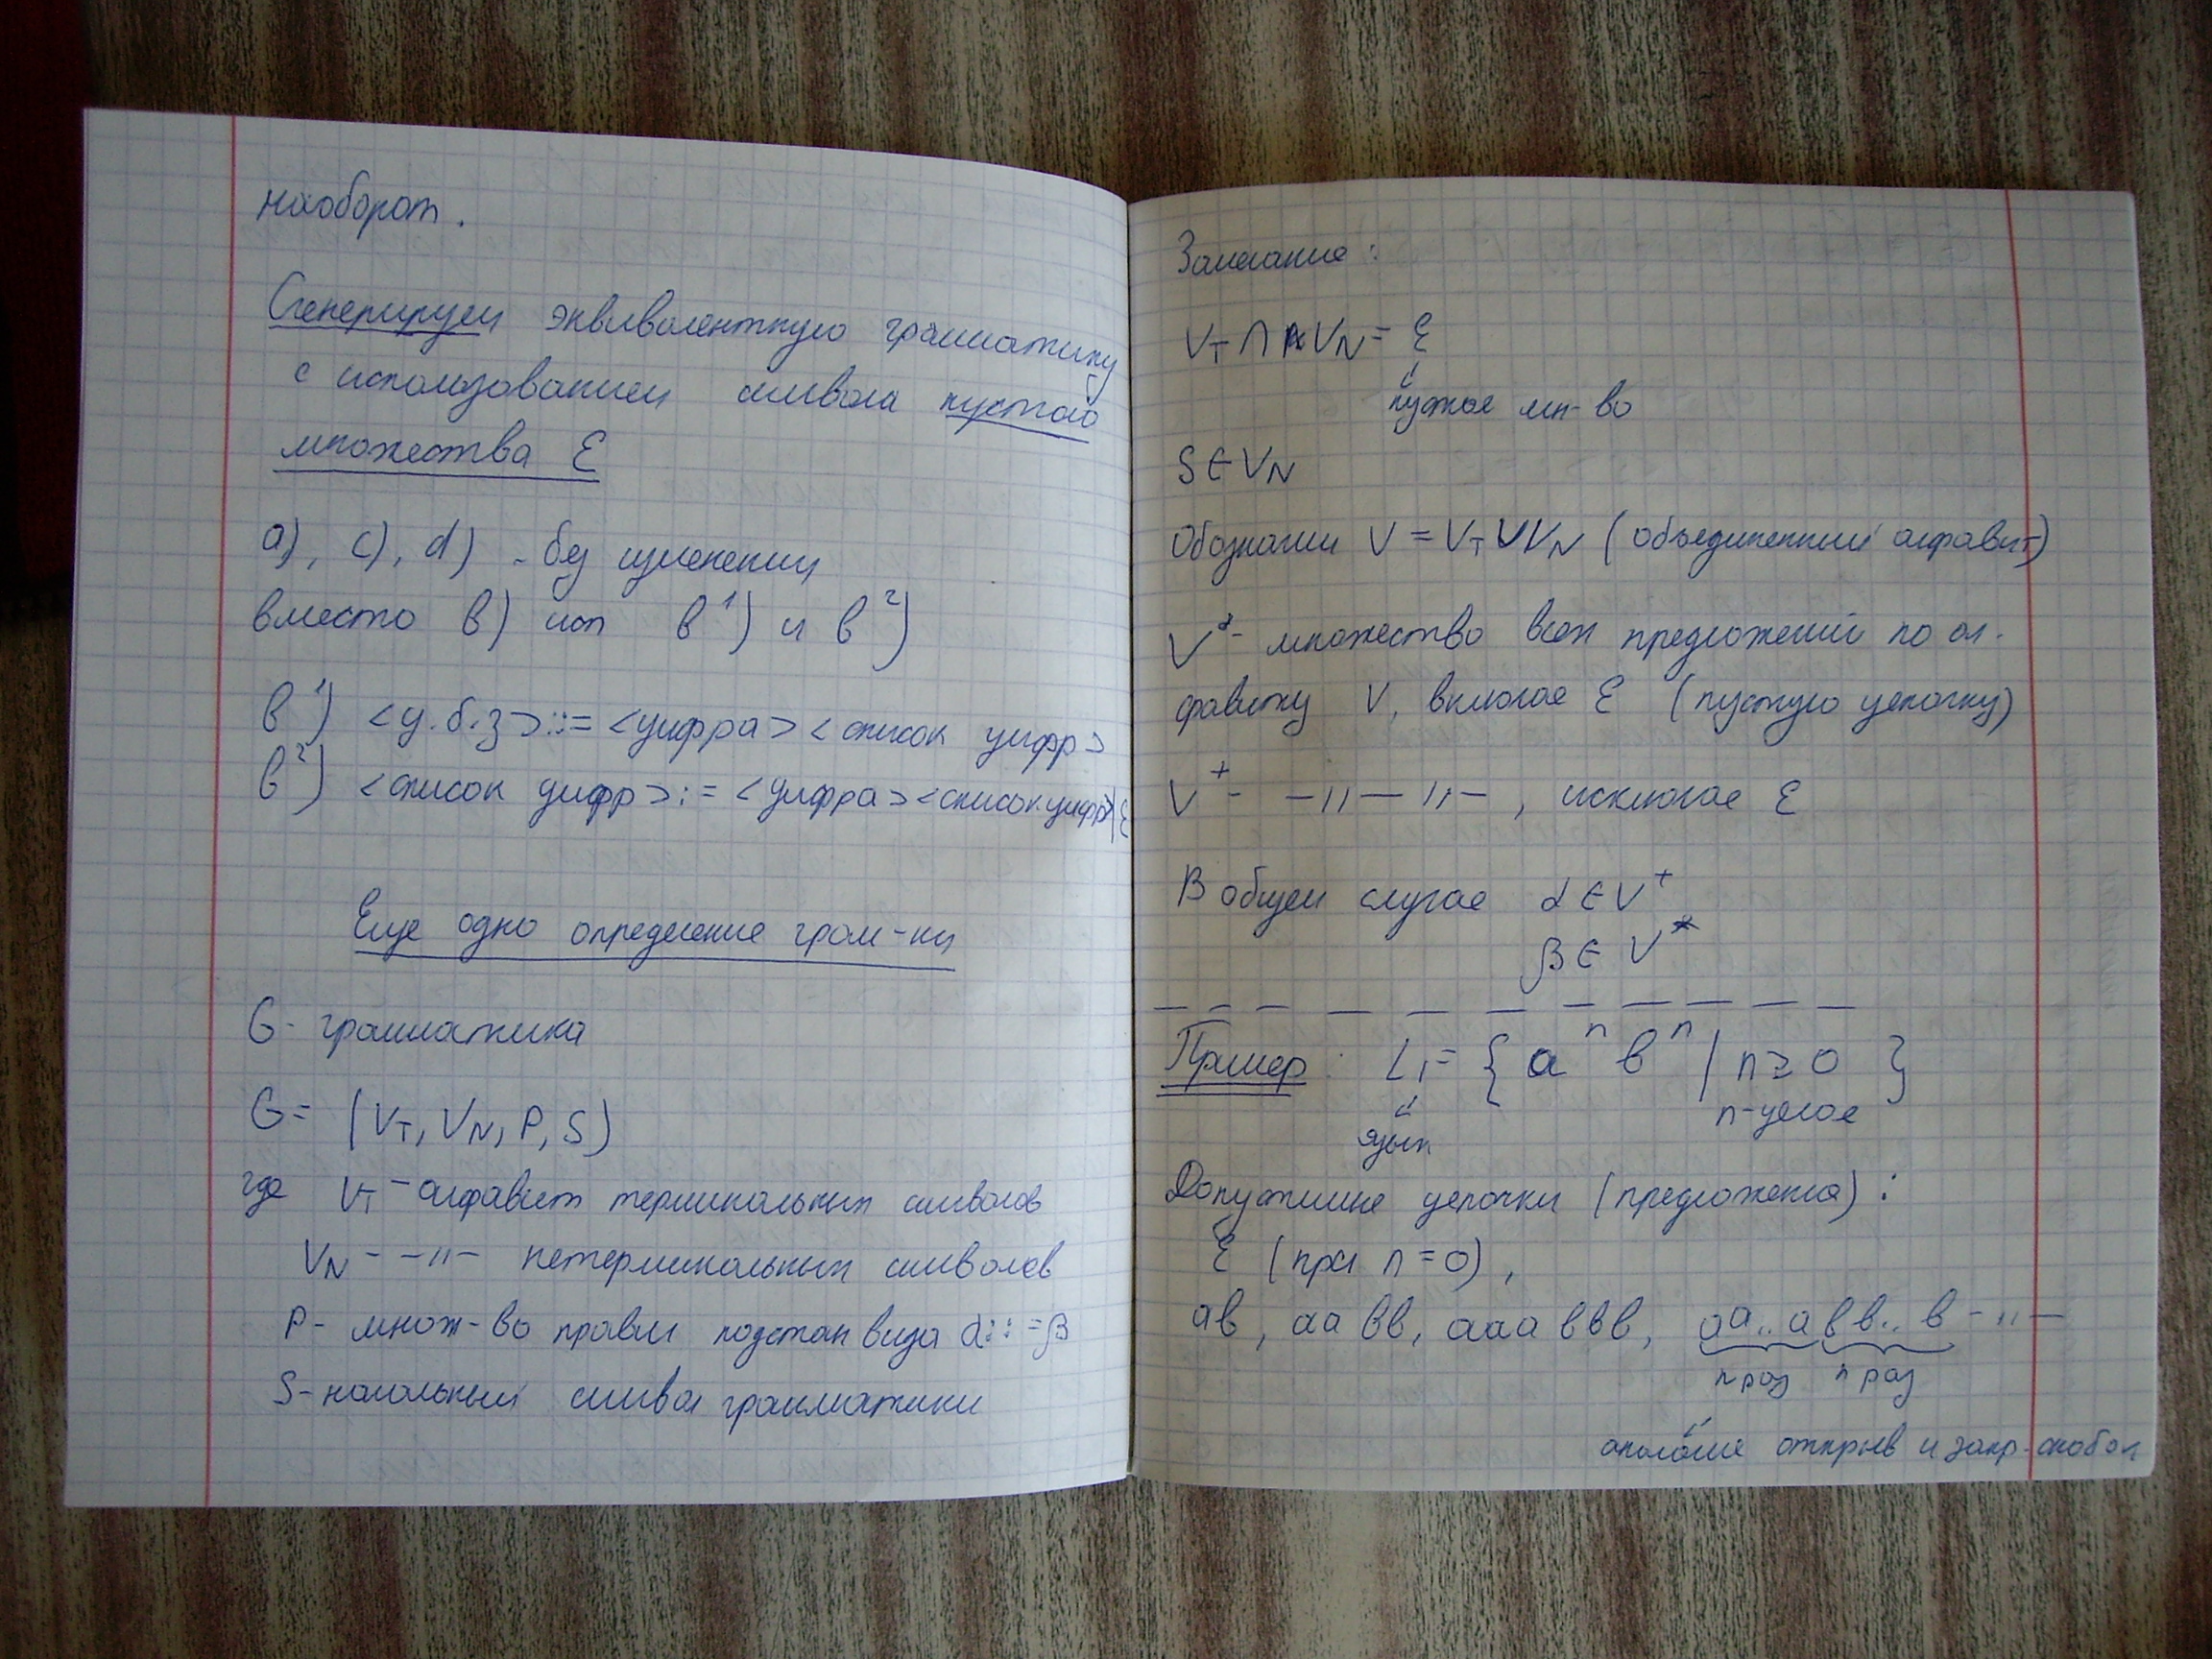 наоборот.
Сгенерируем эквивалентную грамматику
с использованием символа пустого
множества Ɛ
a), c), d) - без изменений
вместо в) исп в¹) и в²)
в¹) <ц.б.з>::=<цифра><список цифр>
в²) <список цифр>:=<цифра><список цифр>|Ɛ
Еще одно определение грам-ки
G - грамматика
G = (V_T, V_N, P, S)
где V_T - алфавит терминальных символов
V_N - -"- нетерминальных символов
P - множ-во правил подстан вида α::=β
S - начальный символ грамматики
Замечание:
V_T ∩ V_N = Ɛ
пустое мн-во
S ∈ V_N
Обозначим V = V_T ∪ V_N (объединенный алфавит)
V* - множество всех предложений по ал-
фавиту V, включая Ɛ (пустую цепочку)
V⁺ - -"- "-, исключая Ɛ
В общем случае α ∈ V⁺
β ∈ V*
Пример: L₁ = { aⁿ вⁿ | n ≥ 0 }
n-целое
язык
Допустимые цепочки (предложения):
Ɛ (при n = 0),
ав, аа вв, ааа ввв, аа..а вв..в -"-
n раз n раз
открыв и закр. скобок